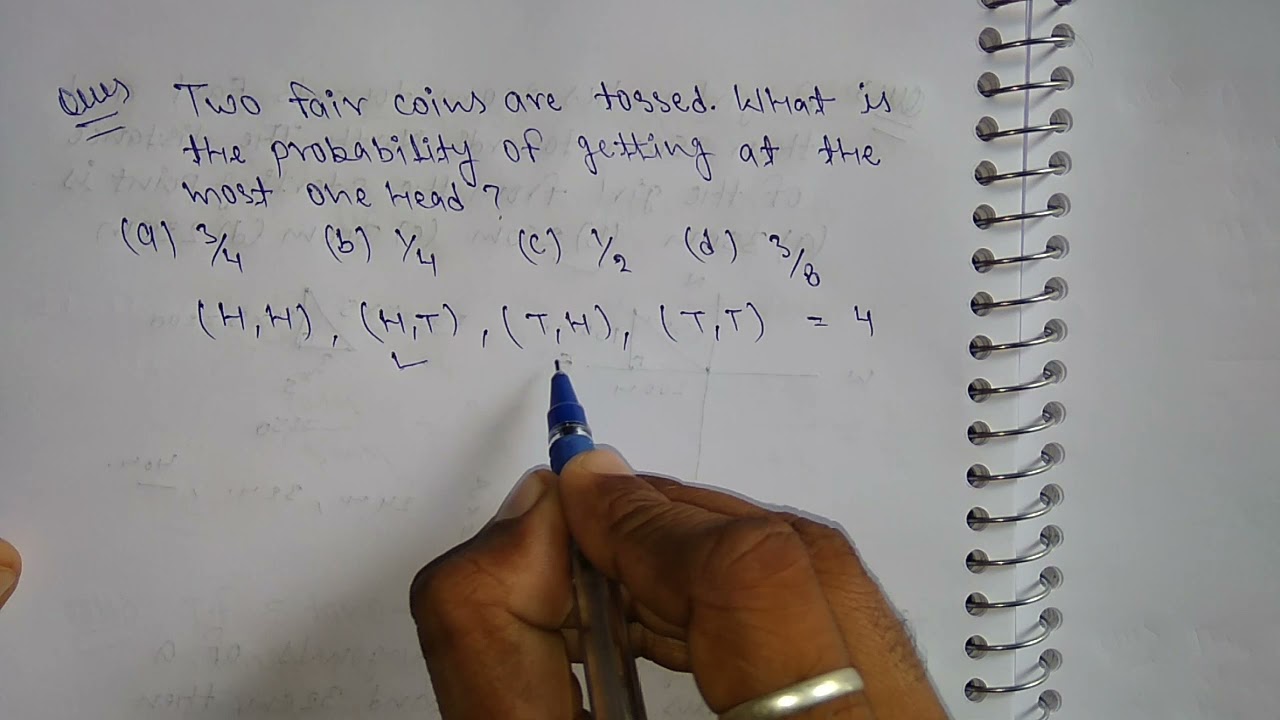 Ques Two fair coins are tossed. What is
the probability of getting at the
most one Head?
(a) 3/4 (b) 1/4 (c) 1/2 (d) 3/8
(H,H), (H,T), (T,H), (T,T) = 4